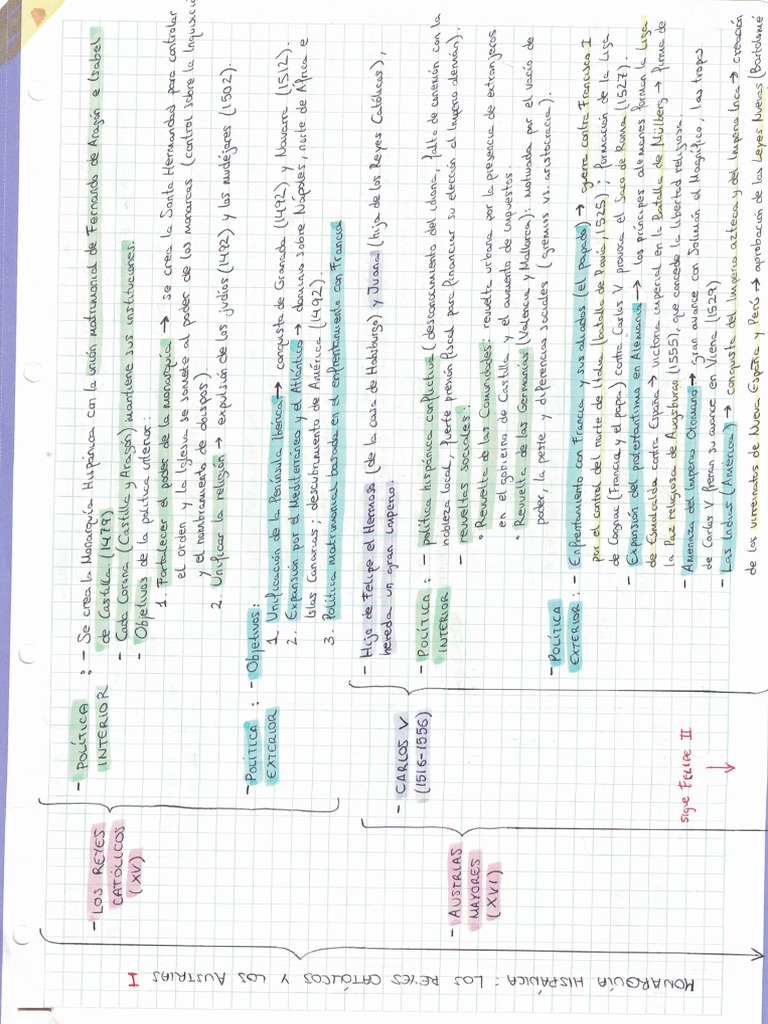 MONARQUÍA HISPÁNICA: LOS REYES CATÓLICOS Y LOS AUSTRIAS I
- LOS REYES
CATÓLICOS
(XV)
- POLÍTICA
INTERIOR
: - Se crea la Monarquía Hispánica con la unión matrimonial de Fernando de Aragón e Isabel
de Castilla. (1479)
- Cada Corona (Castilla y Aragón) mantiene sus instituciones.
- Objetivos de la política interior:
1. Fortalecer el poder de la monarquía → se crea la Santa Hermandad para controlar
el orden y la Iglesia se somete al poder de los monarcas (control sobre la Inquisició
y el nombramiento de obispos)
2. Unificar la religión → expulsión de los judíos (1492) y los mudéjares (1502).
- POLÍTICA
EXTERIOR
: - Objetivos:
1. Unificación de la Península Ibérica → conquista de Granada (1492) y Navarra (1512).
2. Expansión por el Mediterráneo y el Atlántico → dominio sobre Nápoles, norte de África e
Islas Canarias; descubrimiento de América (1492).
3. Política matrimonial basada en el enfrentamiento con Francia
- AUSTRIAS
MAYORES
(XVI)
- CARLOS V
(1516-1556)
- Hijo de Felipe el Hermoso (de la casa de Habsburgo) y Juana (hija de los Reyes Católicos),
hereda un gran imperio.
- POLÍTICA
INTERIOR
: - política hispánica conflictiva (desconocimiento del idioma, falta de conexión con la
nobleza local, fuerte presión fiscal para financiar su elección al Imperio alemán).
- revueltas sociales:
• Revuelta de las Comunidades: revuelta urbana por la presencia de extranjeros
en el gobierno de Castilla y el aumento de impuestos.
• Revuelta de las Germanías (Valencia y Mallorca): motivada por el vacío de
poder, la peste y diferencias sociales (gremios vs. aristocracia).
- POLÍTICA
EXTERIOR
: - Enfrentamiento con Francia y sus aliados (el papado) → guerra contra Francisco I
por el control del norte de Italia (batalla de Pavía (1525); formación de la Liga
de Cognac (Francia y el papa) contra Carlos V provoca el Saco de Roma (1527).
- Expansión del protestantismo en Alemania → los príncipes alemanes forman la Liga
de Esmalcalda contra España → victoria imperial en la Batalla de Mülberg → firma de
la Paz religiosa de Augsburgo (1555), que concede la libertad religiosa.
- Amenaza del Imperio Otomano → gran avance con Solimán el Magnífico, las tropas
de Carlos V frenan su avance en Viena (1529)
- Las Indias (América) → conquista del Imperio azteca y del Imperio Inca → creación
de los virreinatos de Nueva España y Perú → aprobación de las Leyes Nuevas (Bartolomé
sigue FELIPE II